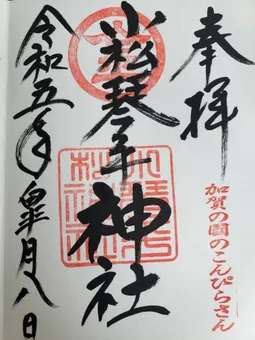 奉拝
加賀の國のこんぴらさん
小松琴平神社
令和五年皐月八日